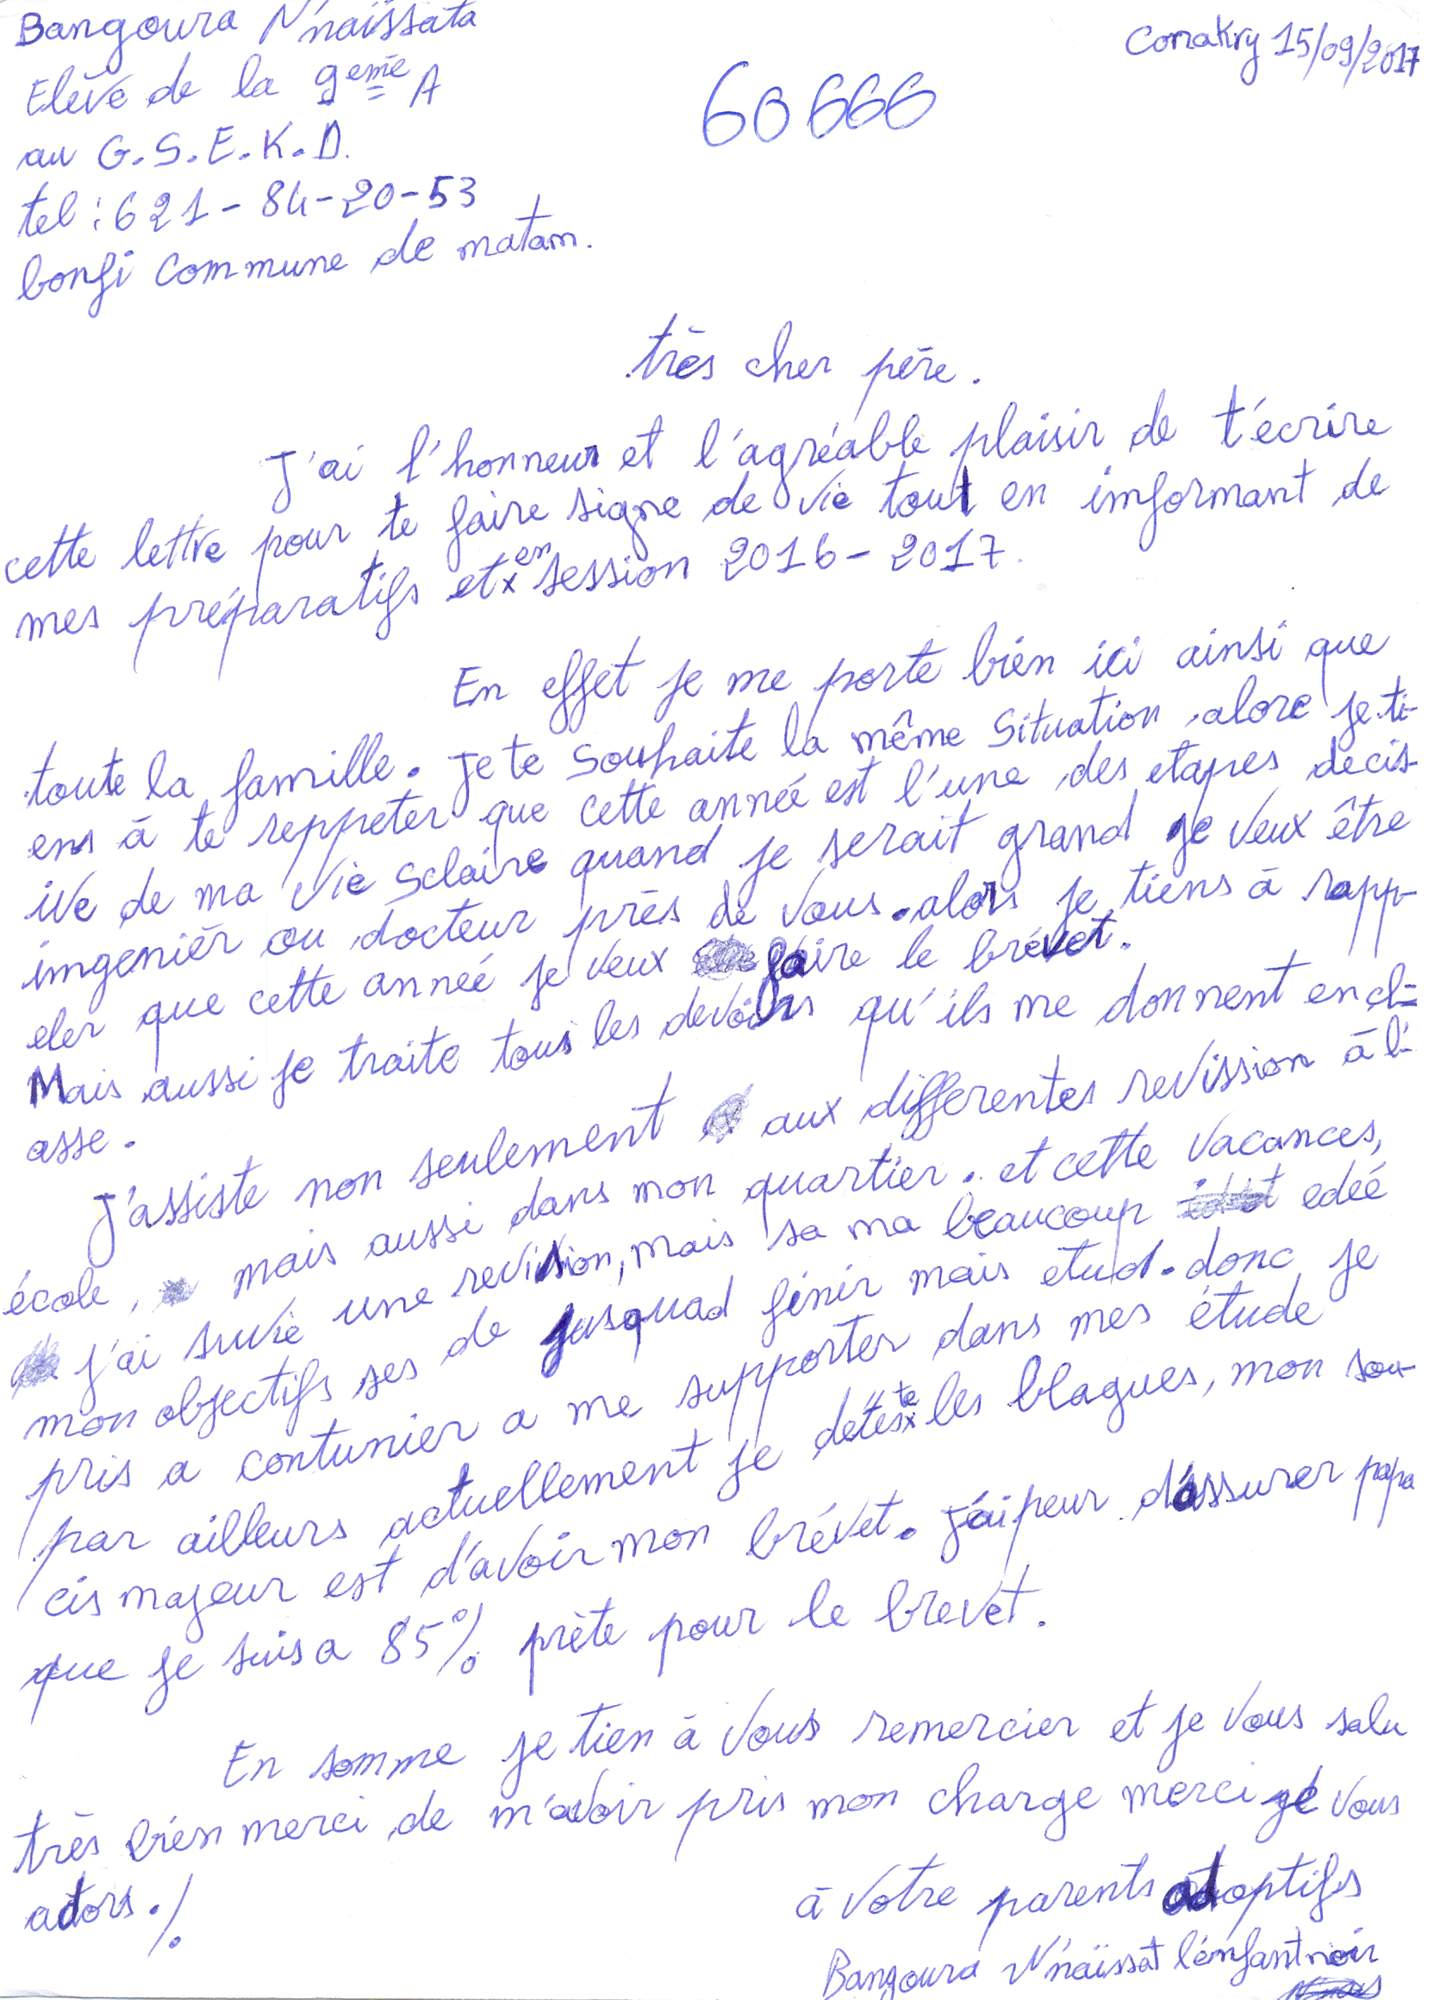 Bangoura N'naïssata
Conakry 15/09/2017
Elève de la 9eme A
60666
au G.S.E.K.D.
tel : 621-84-20-53
bonfi commune de matam.
très cher père.
J'ai l'honneur et l'agréable plaisir de t'écrire
cette lettre pour te faire signe de vie tout en imformant de
mes préparatifs et en session 2016-2017.
En effet je me porte bien ici ainsi que
toute la famille. Je te souhaite la même situation, alore je ti-
ens à te reppeter que cette année est l'une des etapes decis-
ive de ma vie sclaire quand je serait grand je veux être
imgeniér ou docteur près de vous. alors je tiens à rapp-
eler que cette année je veux faire le brévet.
Mais aussi je traite tous les devoirs qu'ils me donnent en cl-
asse.
J'assiste non seulement aux differentes revission à l'
école, mais aussi dans mon quartier. et cette vacances,
j'ai suvie une revision, mais sa ma beaucoup edéé
mon objectifs ses de jusquad finir mais etud. donc je
pris a contunier a me supporter dans mes étude
par ailleurs actuellement je deteste les blagues, mon sou-
cis majeur est d'avoir mon brévet. J'ai peur d'assurer papa
que je suis a 85% prète pour le brevet.
En somme je tien à vous remercier et je vous salu
très bien merci de m'avoir pris mon charge merci je vous
adors./.
à votre parents adoptifs
Bangoura N'naïssat l'enfant noir